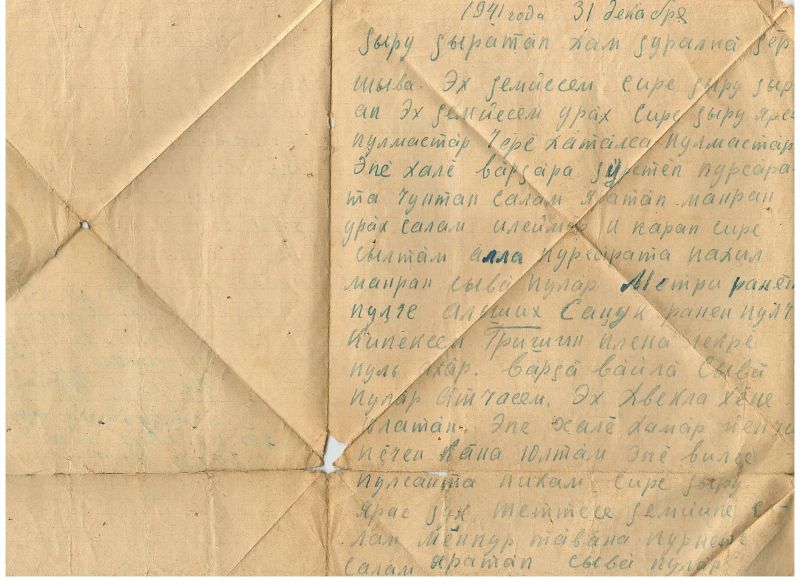 1941 года 31 декабря
ҙыру ҙыратӑп хам ҙуралнӑ ҙӗр
шыва. Эх ҙемйесем сире ҙыру ҙыр
ап Эх ҙемйесем урӑх сире ҙыру ярса
пулмастӑр чӗрӗ хӑтӑлса пулмастӑр
Эпӗ халӗ вӑрҙӑра ҙӳретӗп пурсӑра
та чунтан салам яратӑп манран
урӑх салам илеймӗр и карап сире
сылтӑм алла пурсӑрата пахил
манран сывӑ пулӑр Метри ранен
пулче Саҙук ранен пулч
Кипексен Гришин плена лекре
пуль ахӑр. вӑрҙӑ вӑйлӑ Сывӑ
пулӑр Атчасем. Эх Хвекла хӗне
Эпӗ халӗ хамӑр йенчи
пӗчен кӑна юлтӑм Эпӗ вилсе
пулсанта никам сире ҙыру
ярас ҙук. ТетTесе ҙемйипе са
лам мӗнпур тӑвана пурнете
Салам яратӑп сывӑ пулӑр